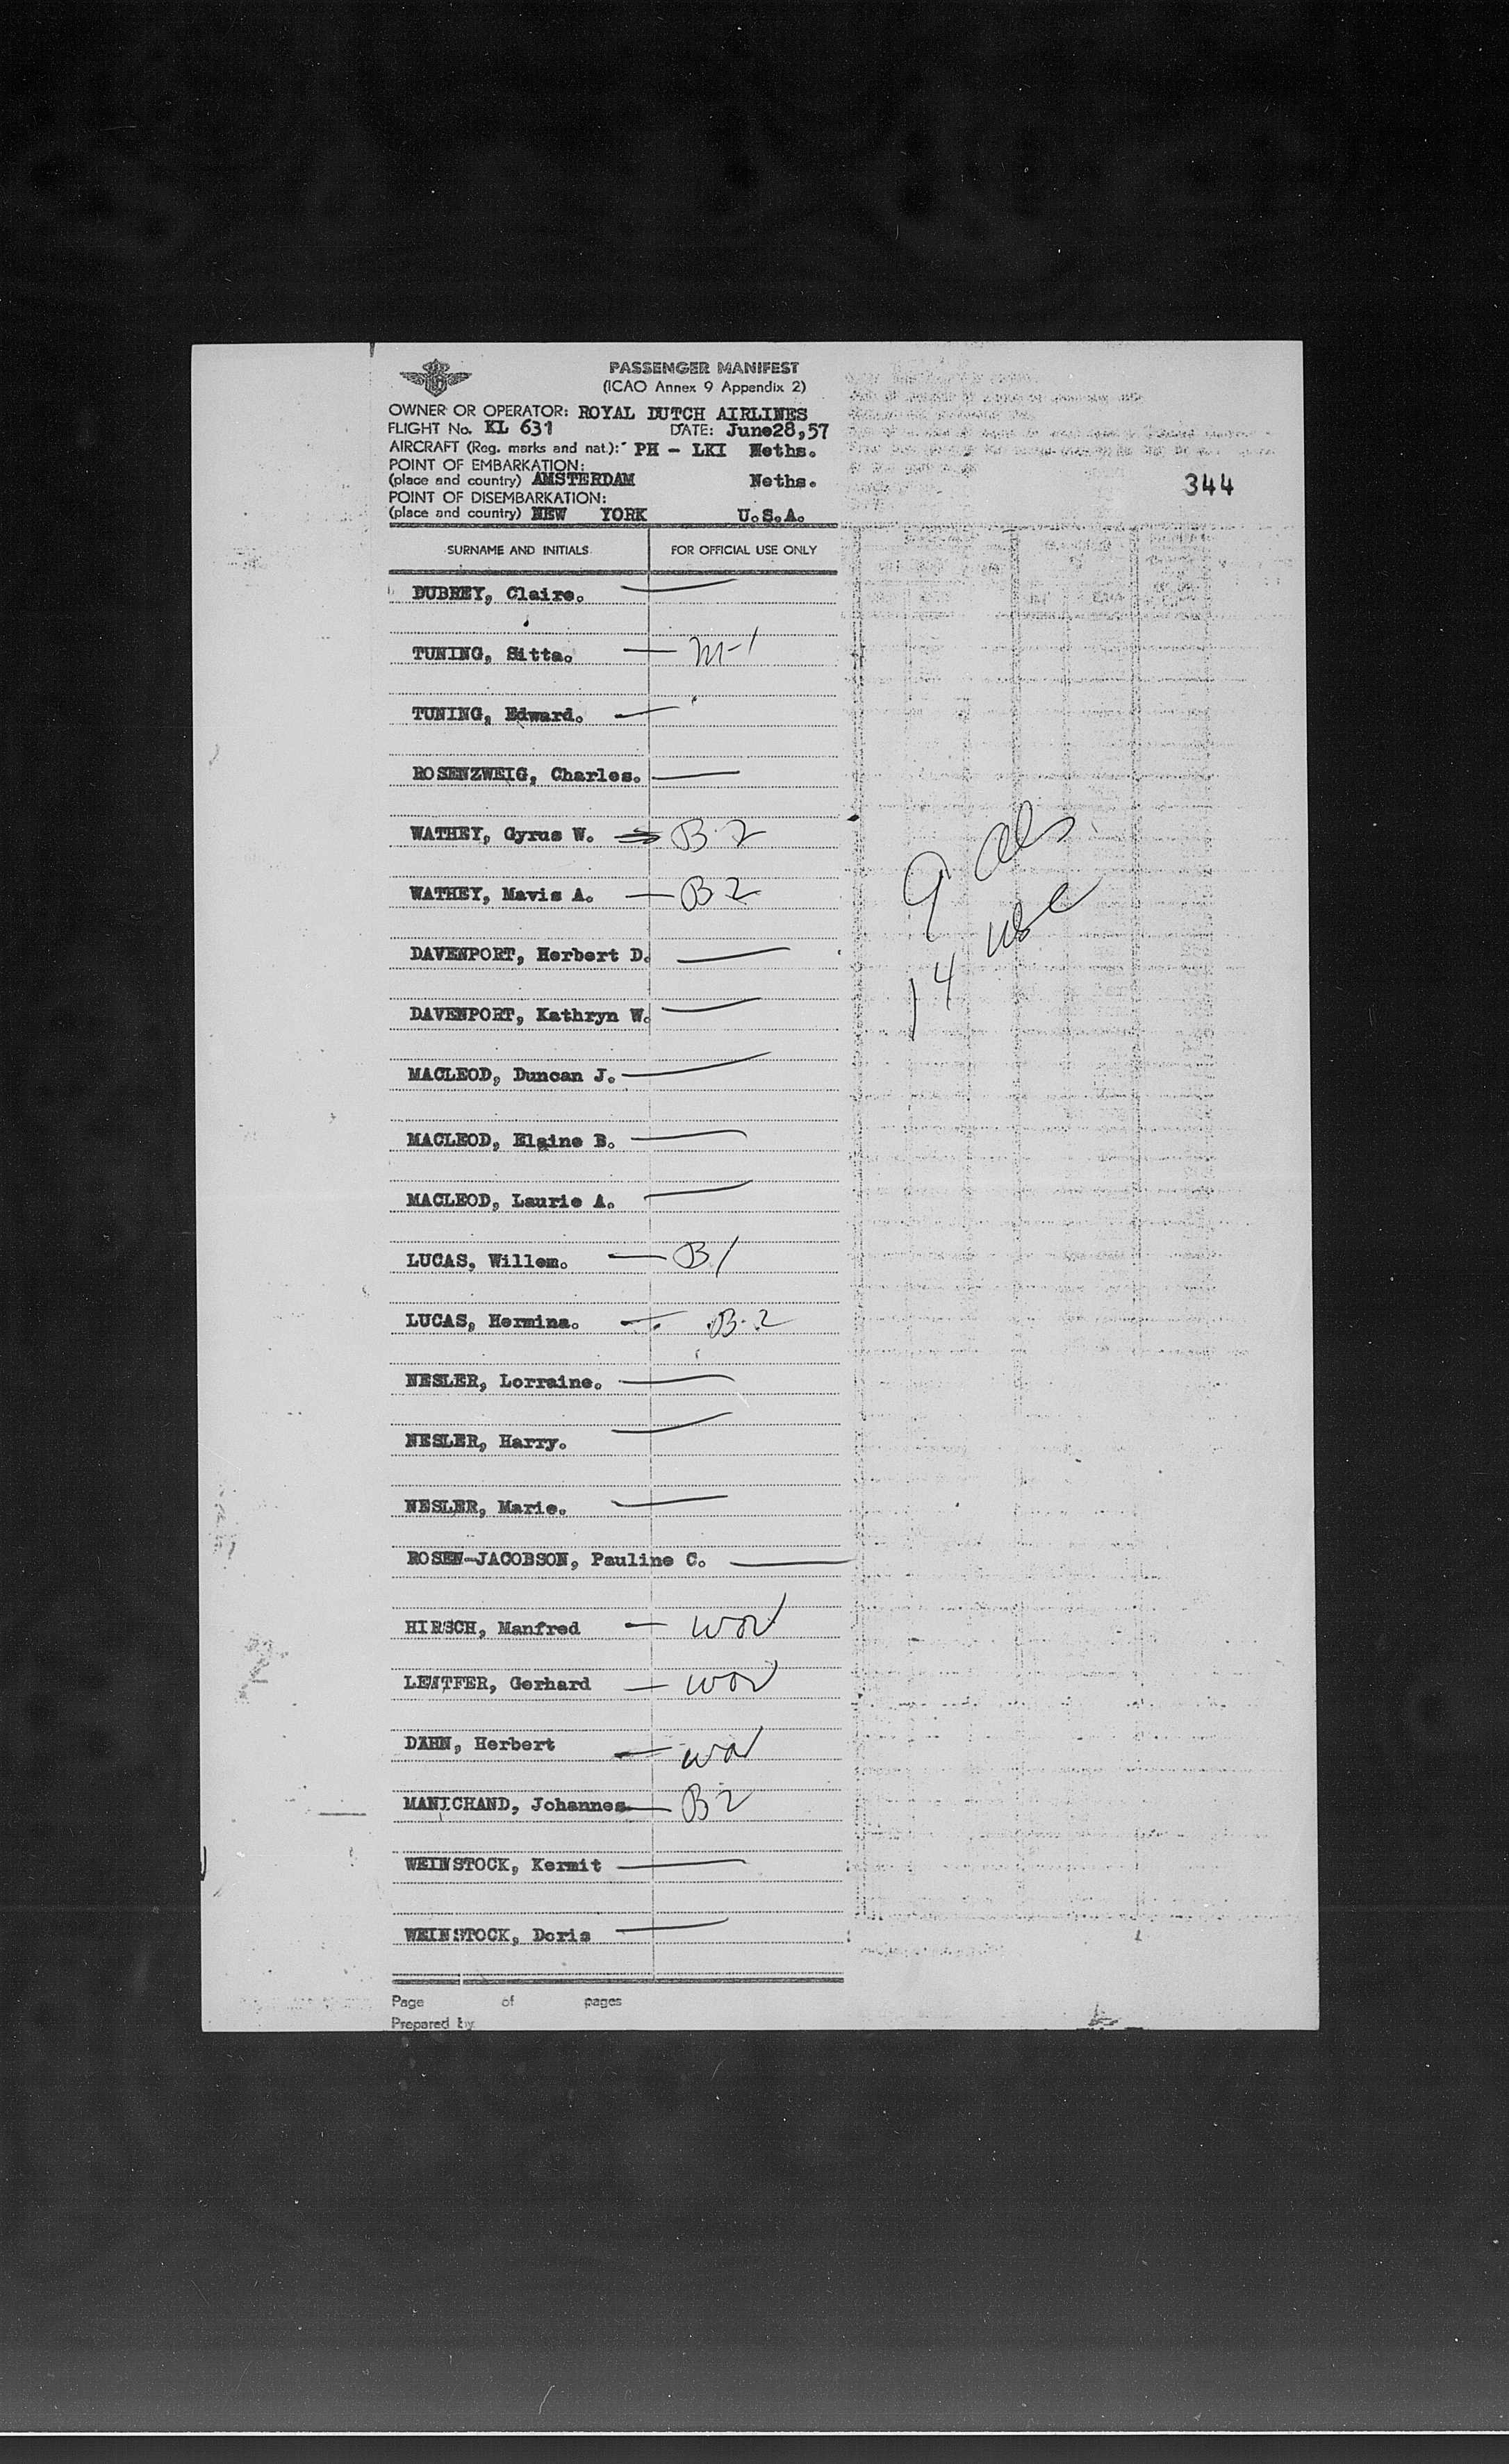 PASSENGER MANIFEST
(ICAO Annex 9 Appendix 2)
OWNER OR OPERATOR: ROYAL DUTCH AIRLINES
FLIGHT No. KL 631 DATE: June28,57
AIRCRAFT (Reg. marks and nat.): PH - LKI Neths.
POINT OF EMBARKATION:
(place and country) AMSTERDAM Neths.
344
POINT OF DISEMBARKATION:
(place and country) NEW YORK U.S.A.
SURNAME AND INITIALS FOR OFFICIAL USE ONLY
DUBREY, Claire.
TUNING, Sitta. — M-1
TUNING, Edward.
ROSENZWEIG, Charles.
WATHEY, Gyrus W. B-2
WATHEY, Mavis A. — B2
DAVENPORT, Herbert D.
DAVENPORT, Kathryn W.
MACLEOD, Duncan J.
MACLEOD, Elaine B.
MACLEOD, Laurie A.
LUCAS, Willem. — B1
LUCAS, Hermina. — B-2
NESLER, Lorraine.
NESLER, Harry.
NESLER, Marie.
ROSEN-JACOBSON, Pauline C.
HIRSCH, Manfred — WOV
LENTFER, Gerhard — WOV
DÄHN, Herbert — WOV
MANICHAND, Johannes — B2
WEINSTOCK, Kermit
WEINSTOCK, Doris
9 als
14 usc
Page of pages
Prepared by